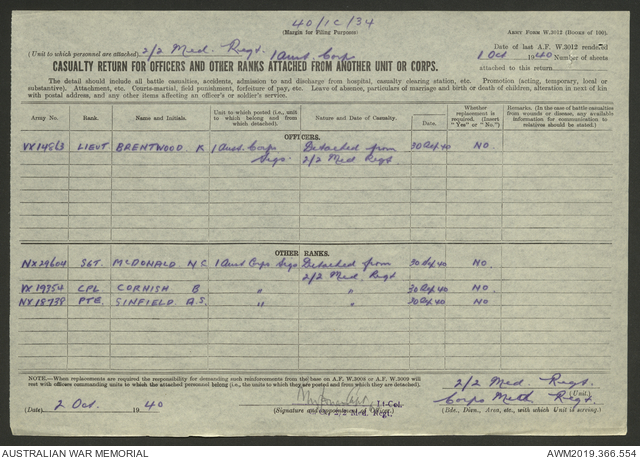 40/1C/34
(Margin for Filing Purposes)
ARMY FORM W.3012 (BOOKS OF 100).
(Unit to which personnel are attached) 2/2 Med. Regt. 1 Aust Corps
Date of last A.F. W.3012 rendered 1 Oct 1940 Number of sheets attached to this return
CASUALTY RETURN FOR OFFICERS AND OTHER RANKS ATTACHED FROM ANOTHER UNIT OR CORPS.
The detail should include all battle casualties, accidents, admission to and discharge from hospital, casualty clearing station, etc. Promotion (acting, temporary, local or
substantive). Attachment, etc. Courts-martial, field punishment, forfeiture of pay, etc. Leave of absence, particulars of marriage and birth or death of children, alteration in next of kin
with postal address, and any other items affecting an officer's or soldier's service.
Army No. Rank. Name and Initials. Unit to which posted (i.e., unit to which belong and from which detached). Nature and Date of Casualty. Date. Whether replacement is required. (Insert "Yes" or "No.") Remarks. (In the case of battle casualties from wounds or disease, any available information for communication to relatives should be stated.)
OFFICERS.
VX14863 LIEUT BRENTWOOD K 1 Aust. Corps Detached from 30 Sep 40 NO
Sigs. 2/2 Med Regt
OTHER RANKS.
NX29604 SGT. MCDONALD N C 1 Aust Corps Sigs Detached from 30 Sep 40 NO
2/2 Med Regt
VX19354 CPL CORNISH B " " 30 Sep 40 NO
NX18738 PTE. SINFIELD A.S. " " 30 Sep 40 NO
NOTE.—When replacements are required the responsibility for demanding such reinforcements from the base on A.F. W.3008 or A.F. W.3009 will
rest with officers commanding units to which the attached personnel belong (i.e., the units to which they are posted and from which they are detached).
2/2 Med. Regt. (Unit)
(Date) 2 Oct. 1940
Lt-Col.
(Signature and Appointment of Officer.)
CO 2/2 Med. Regt.
Corps Meth Regt.
(Bde., Divn., Area, etc., with which Unit is serving.)
AUSTRALIAN WAR MEMORIAL
AWM2019.366.554